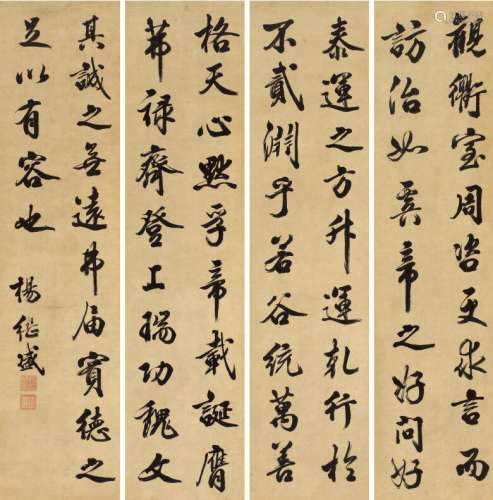 觀衢室周咨更求言而
訪治如虞帝之好問好
泰運之方升運乾行於
不貳淵乎若谷統萬善
格天心默孚帝載誕膺
茀祿齊登上瑞功巍文
其誠之無遠弗届實德之
足以有容也
楊繼盛